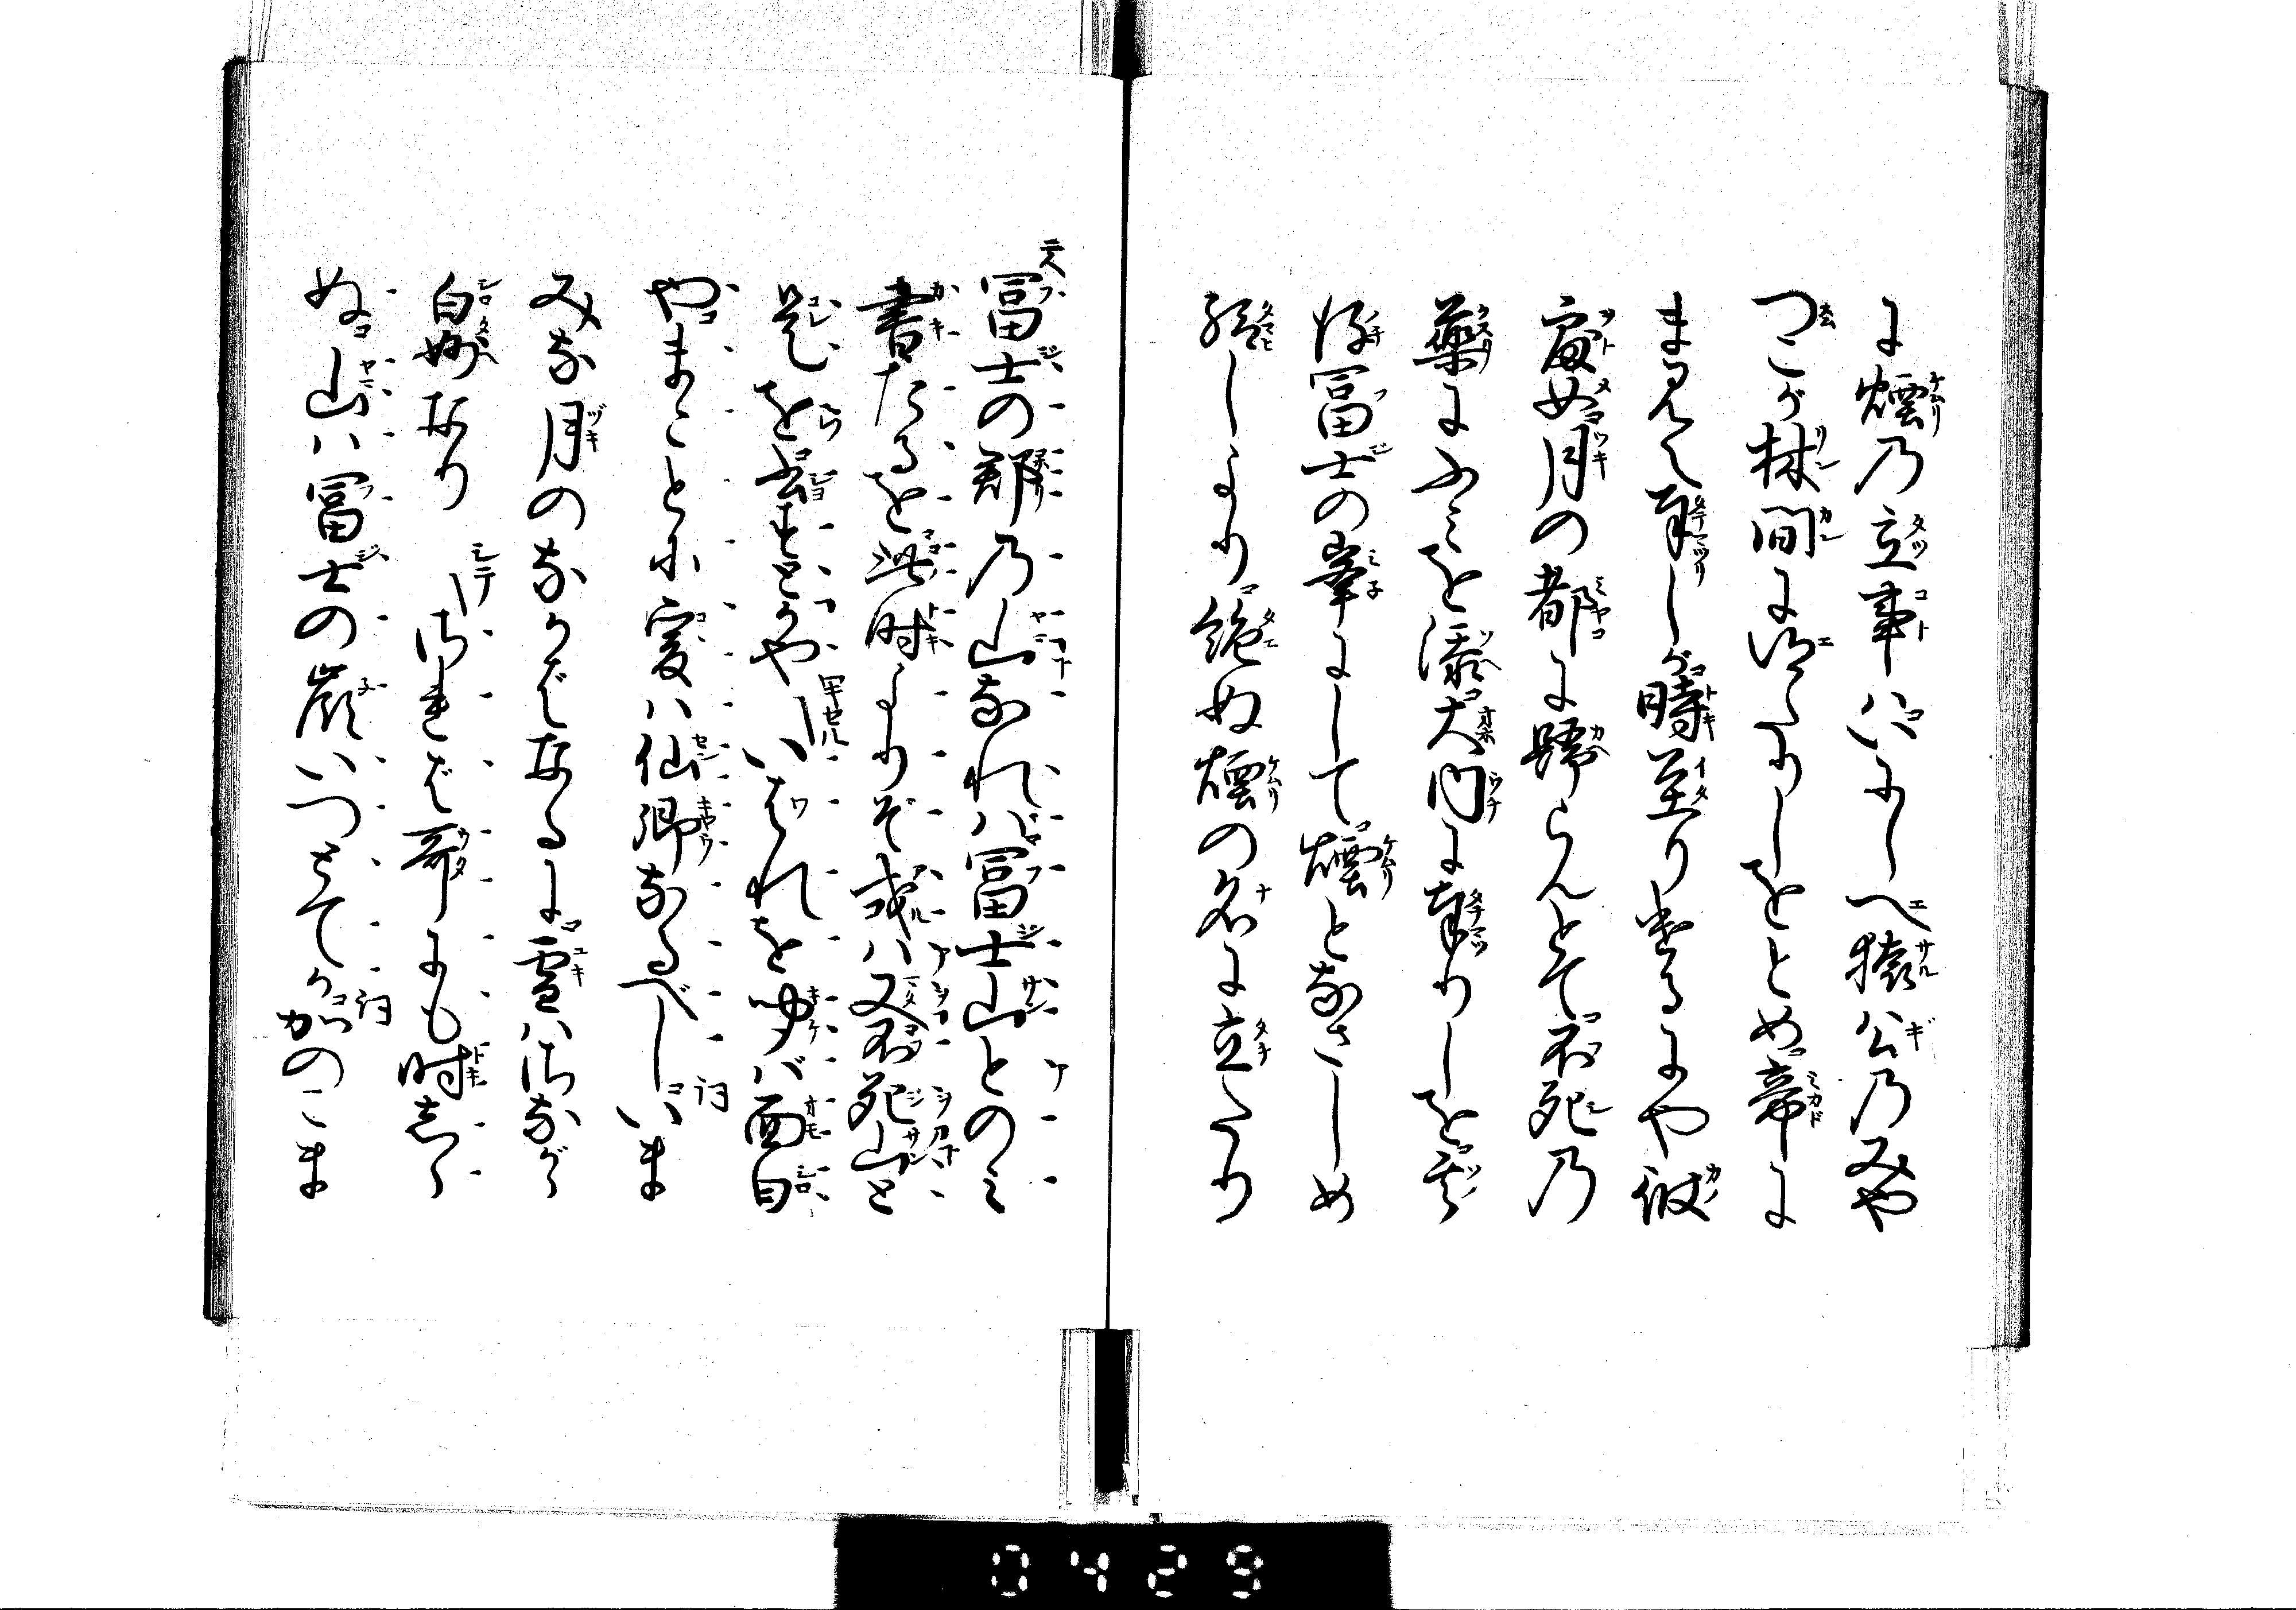 に煙乃立事ハいにしへ猿公乃みや
つこが林間に得たりしをとめ帝に
まみえ奉しが時至り遂るにや彼
最女月の都に歸らんとて不死乃
藥にふみを添大内に奉りしを其
後冨士の峯にして煙となさしめ
給しより絶ぬ煙の名に立たり
冨士の郡乃山なれバ冨士山とのミ
書たるを此時よりぞ或ハ又不死山と
是を云すとかや いはれを聞バ面白
やまことに爰ハ仙郷なるべし いま
みな月のなかばなるに雪ハさながら
白妙なり されば哥にも時志ら
ぬ山ハ冨士の嶺いつとてかかのこま
0429